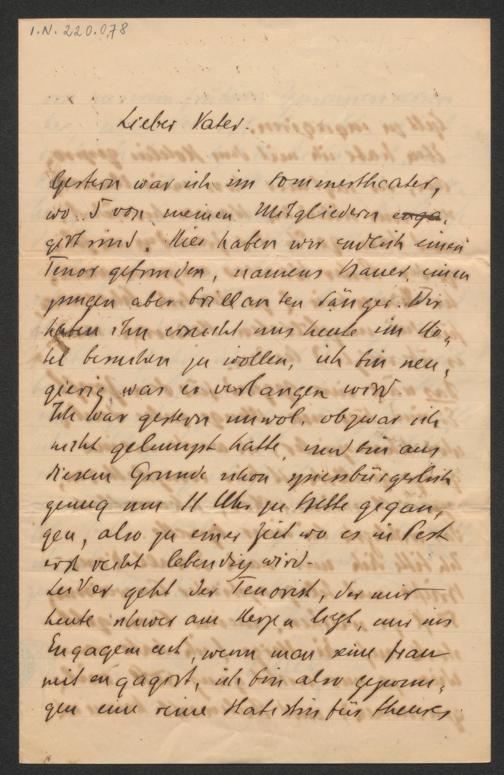 I.N. 220.078
Lieber Vater.
Gestern war ich im Sommertheater,
wo 5 von meinen Mitgliedern enga-
girt sind. Hier haben wir endlich einen
Tenor gefunden, namens Bauer, einen
jungen aber brillanten Sänger. Wir
haben ihn ersucht uns heute im Ho-
tel besuchen zu wollen, ich bin neu-
gierig was er verlangen wird
Ich war gestern unwol, obzwar ich
nicht gelumpt hatte, und bin aus
diesem Grunde schon spiessbürgerlich
genug um 11 Uhr zu Bette gegan-
gen, also zu einer Zeit wo es in Pest
erst recht lebendig wird.
Leider geht der Tenorist, der mir
heute schwer am Herzen liegt, nur ins
Engagement, wenn man seine Frau
mit engagirt, ich bin also gezwun-
gen eine reine Statistin für theures